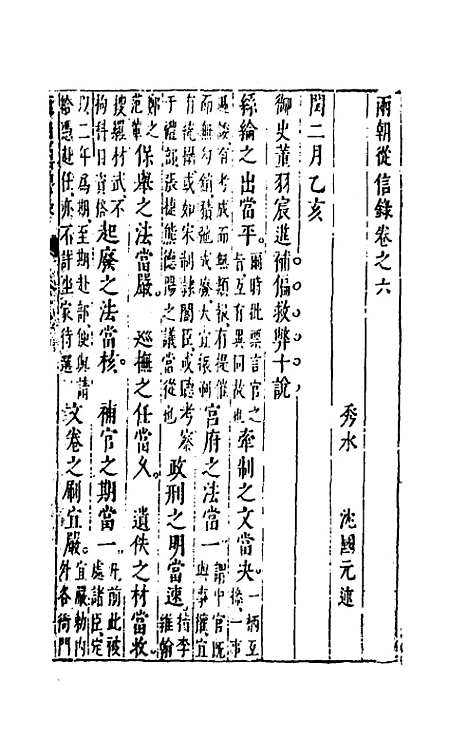 兩朝從信錄卷之六
秀水 沈國元述
閏二月乙亥
御史董羽宸進補偏救弊十說
絲綸之出當平。爾時批票言官之音互有異同故也牽制之文當決。一柄互操、一事
設有考成而無類報有提催而無勾銷猜弛或廢大宜振刷宮府之法當一謂中官既與事權宜
有統攝或如宋制隸閣臣或聽考察于禮部張捷熊德陽之議當從也政刑之明當速將李維翰
鄭之范軍保舉之法當嚴 巡撫之任當久 遺佚之材當收
搜羅材武不拘科目資格起廢之法當核 補官之期當一凡前此被處諸臣定
以二年為期至期赴部便與請給憑赴任亦不許坐家待選文卷之刷宜嚴。宜嚴勅內外各衙門